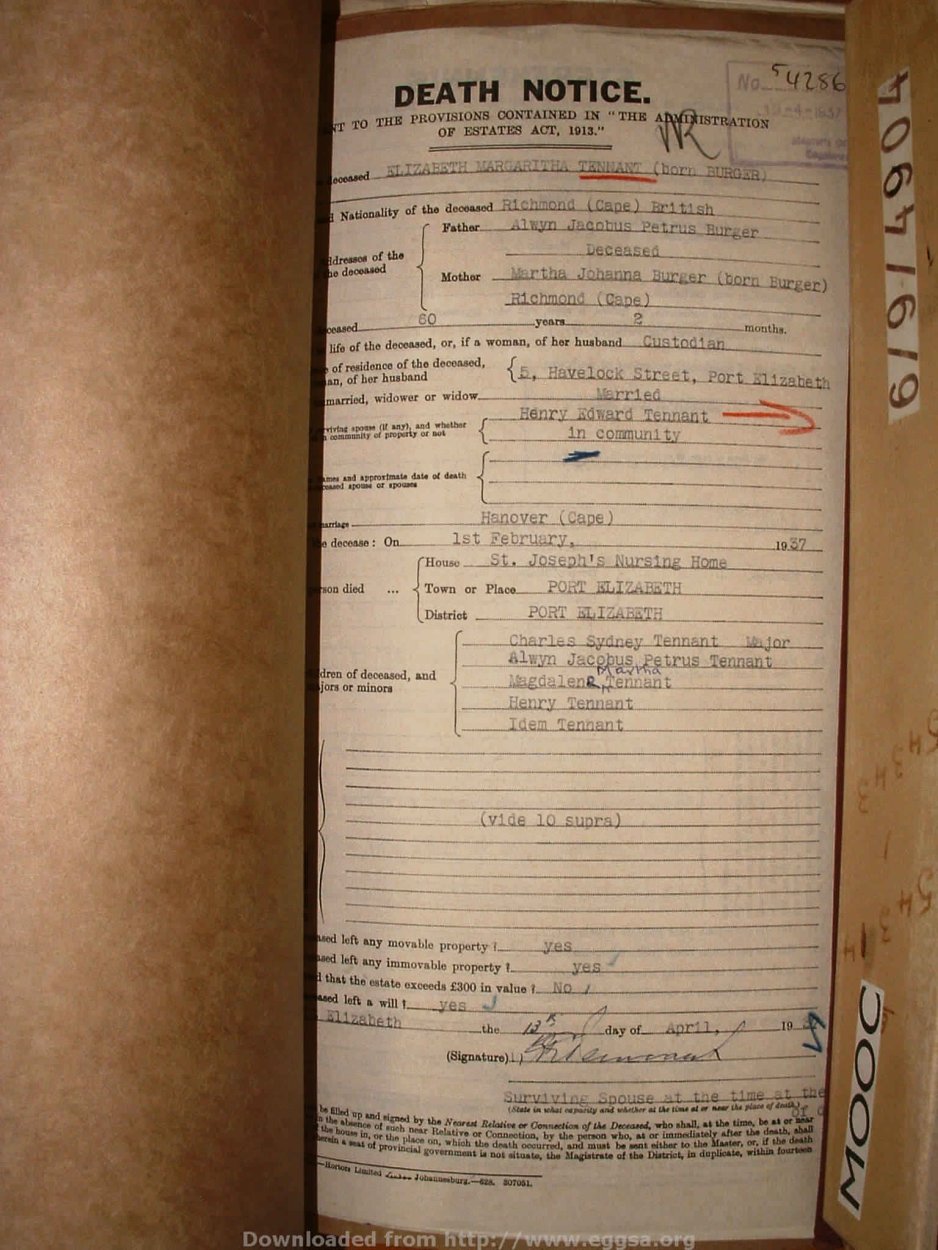 No. 54286
DEATH NOTICE.
NT TO THE PROVISIONS CONTAINED IN "THE ADMINISTRATION
OF ESTATES ACT, 1913."
deceased ELIZABETH MARGARITHA TENNANT (born BURGER)
Nationality of the deceased Richmond (Cape) British
Father Alwyn Jacobus Petrus Burger
Deceased
ddresses of the
he deceased
Mother Martha Johanna Burger (born Burger)
Richmond (Cape)
ceased 60 years 2 months.
life of the deceased, or, if a woman, of her husband Custodian
of residence of the deceased,
an, of her husband
5, Havelock Street, Port Elizabeth
married, widower or widow Married
rviving spouse (if any), and whether
community of property or not
Henry Edward Tennant
in community
ames and approximate date of death
ceased spouse or spouses
marriage Hanover (Cape)
e decease: On 1st February, 1937
House St. Joseph's Nursing Home
rson died ... Town or Place PORT ELIZABETH
District PORT ELIZABETH
Charles Sydney Tennant Major
Alwyn Jacobus Petrus Tennant
ldren of deceased, and
ajors or minors
Magdalena Martha Tennant
Henry Tennant
Idem Tennant
(vide 10 supra)
ased left any movable property ? yes
ased left any immovable property ? yes
d that the estate exceeds £300 in value ? No
ased left a will ? yes
Elizabeth the 13th day of April, 19
(Signature)
Surviving Spouse at the time at the
(State in what capacity and whether at the time at or near the place of death.)
be filled up and signed by the Nearest Relative or Connection of the Deceased, who shall, at the time, be at or near
n the absence of such near Relative or Connection, by the person who, at or immediately after the death, shall
the house in, or the place on, which the death occurred, and must be sent either to the Master, or, if the death
herein a seat of provincial government is not situate, the Magistrate of the District, in duplicate, within fourteen
Hortors Limited Johannesburg.—628. 307051.
MOOC
Downloaded from http://www.eggsa.org